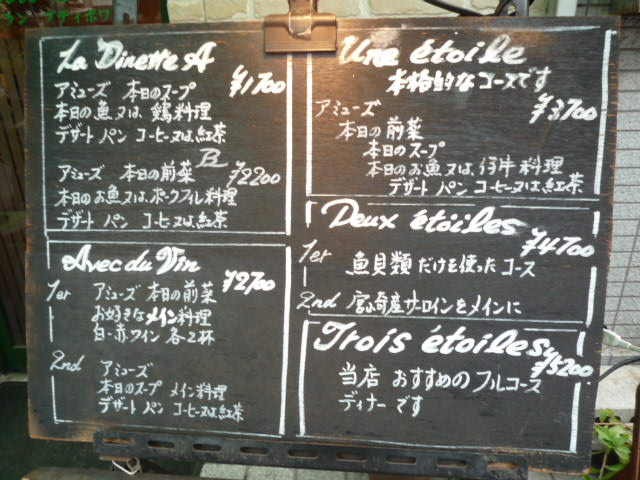 La Dinette A
アミューズ 本日のスープ ¥1700
本日の魚又は 鶏料理
デザート パン コーヒー又は、紅茶
B
アミューズ 本日の前菜 ¥2200
本日のお魚又は、ポークフィレ料理
デザート パン コーヒー又は、紅茶
Avec du Vin
¥2700
1er アミューズ 本日の前菜
お好きなメイン料理
白・赤ワイン 各一杯
2nd アミューズ
本日のスープ メイン料理
デザート パン コーヒー又は、紅茶
Une étoile
本格的な コースです
¥3700
アミューズ
本日の 前菜
本日のスープ
本日のお魚又は、仔牛料理
デザート パン コーヒー又は、紅茶
Deux étoiles
¥4700
1er 魚貝類だけを使ったコース
2nd 宮崎産サーロインをメインに
Trois étoiles
¥5200
当店 おすすめの フルコース
ディナーです